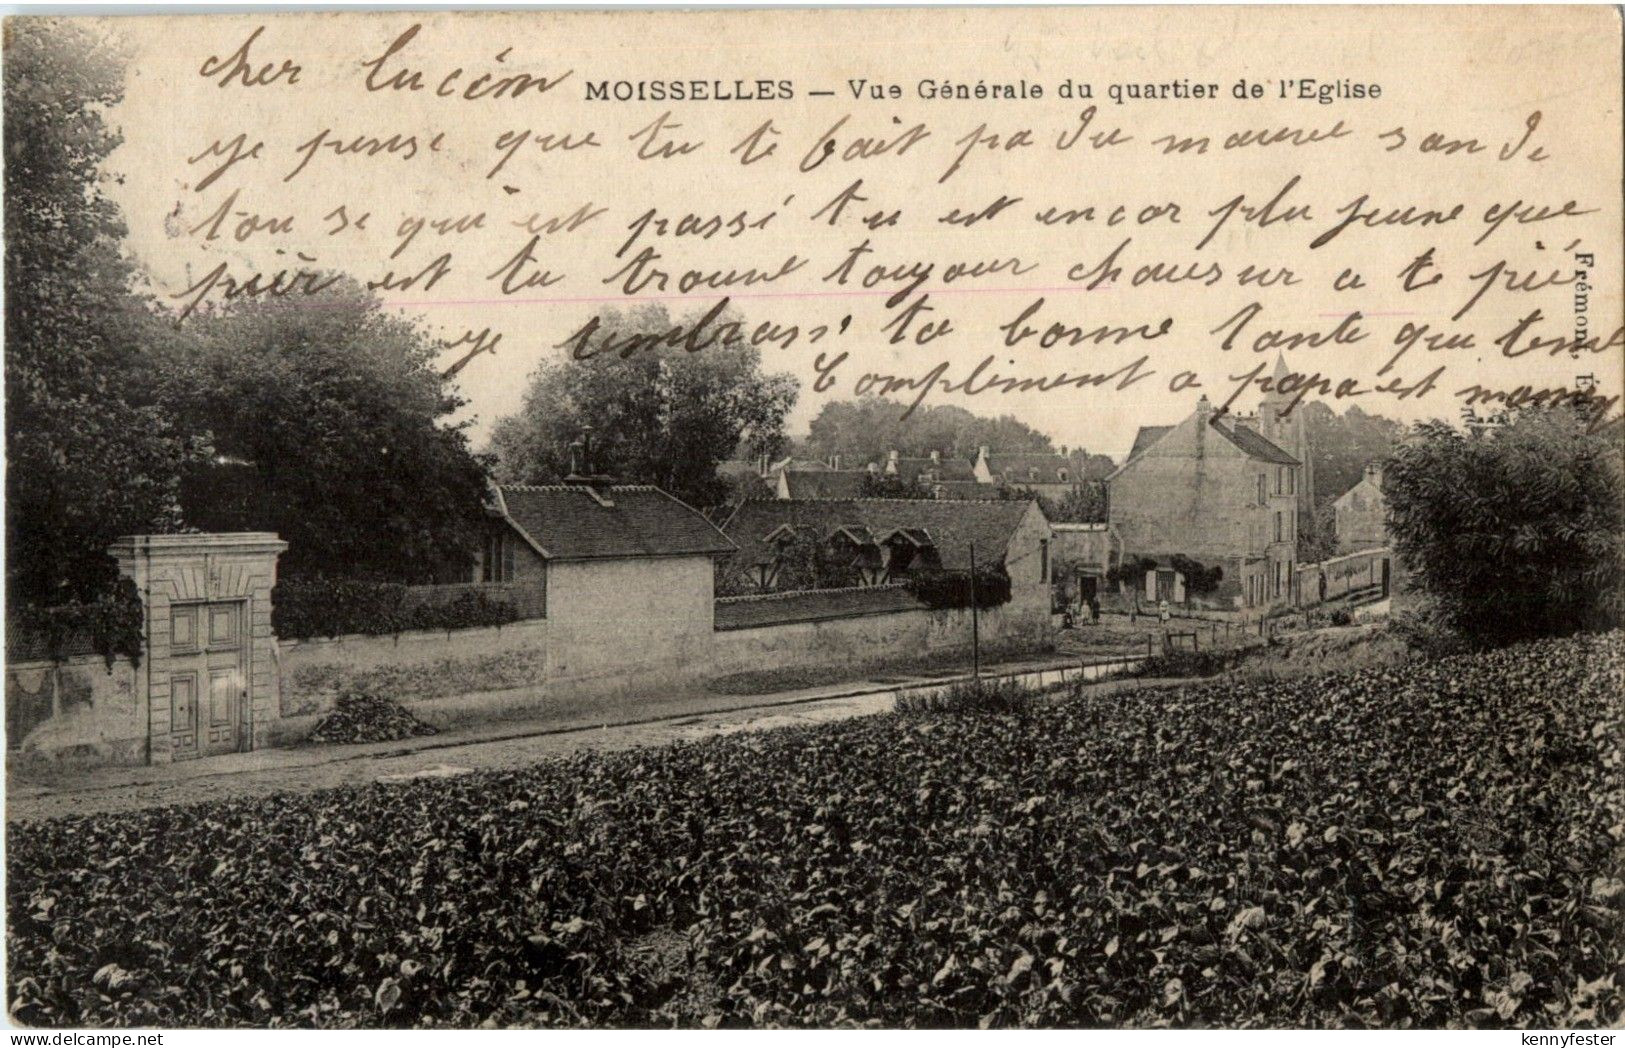 cher Lucién
MOISSELLES — Vue Générale du quartier de l'Eglise
Je pense que tu te fait pa du mauve san de
tou se qui est passé tu est encor plu jeune que
pièr est tu trouve toujour chausur a te pié
Je tembrass' ta bonne tante qui teme
Compliment a papa et maman
Frémont, É
kennyfester